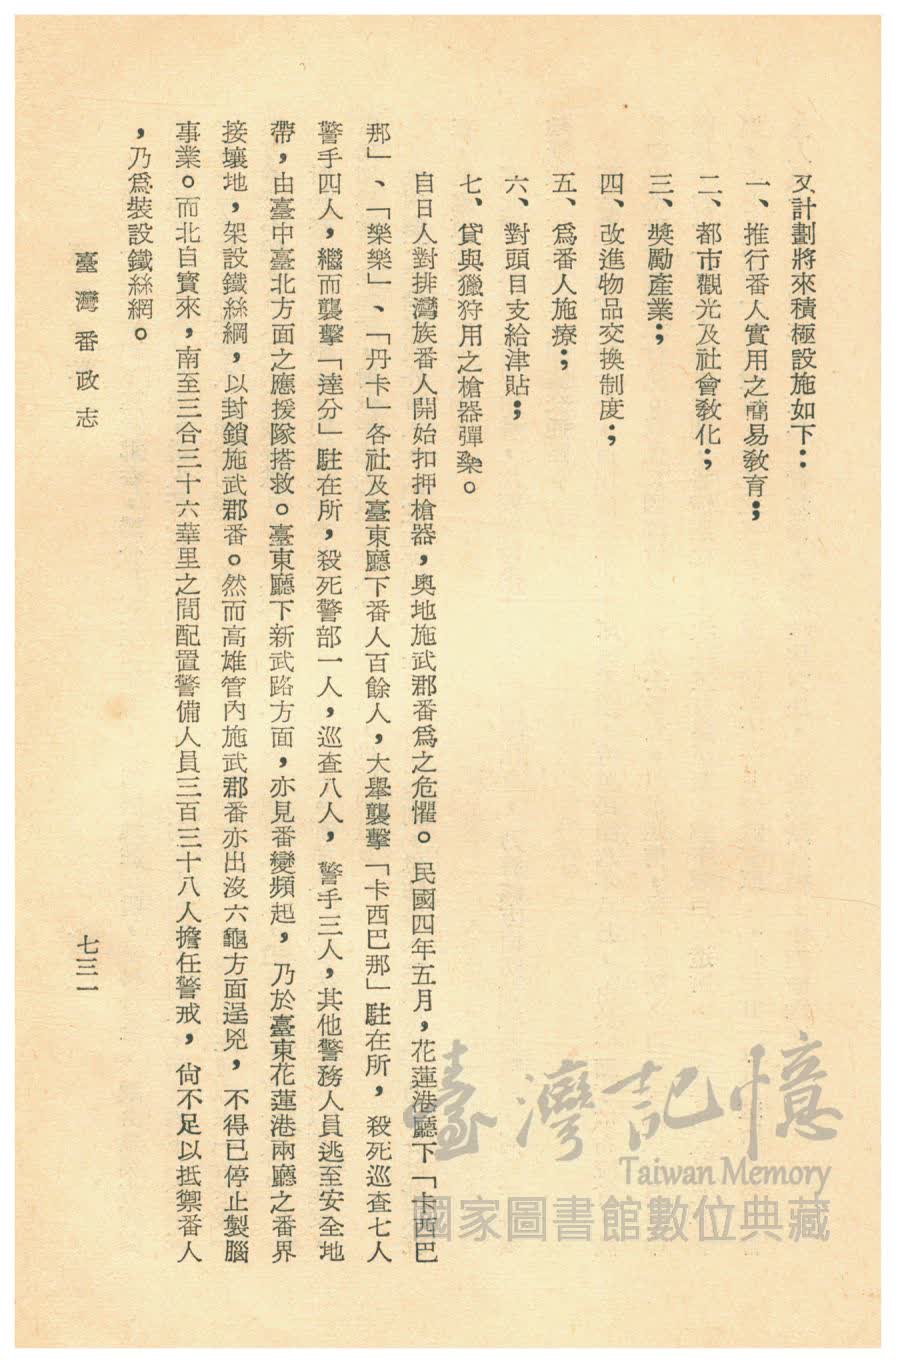 又計劃將來積極設施如下：
一、推行番人實用之簡易敎育；
二、都市觀光及社會敎化；
三、獎勵產業；
四、改進物品交換制度；
五、爲番人施療；
六、對頭目支給津貼；
七、貸與獵狩用之槍器彈藥。
自日人對排灣族番人開始扣押槍器，奧地施武郡番爲之危懼。民國四年五月，花蓮港廳下「卡西巴
那」、「樂樂」、「丹卡」各社及臺東廳下番人百餘人，大舉襲擊「卡西巴那」駐在所，殺死巡查七人
警手四人，繼而襲擊「達分」駐在所，殺死警部一人，巡查八人，警手三人，其他警務人員逃至安全地
帶，由臺中臺北方面之應援隊搭救。臺東廳下新武路方面，亦見番變頻起，乃於臺東花蓮港兩廳之番界
接壤地，架設鐵絲網，以封鎖施武郡番。然而高雄管內施武郡番亦出沒六龜方面逞兇，不得已停止製腦
事業。而北自寶來，南至三合三十六華里之間配置警備人員三百三十八人擔任警戒，尙不足以抵禦番人
，乃爲裝設鐵絲網。
臺灣番政志
七三一
臺灣記憶
Taiwan Memory
國家圖書館數位典藏